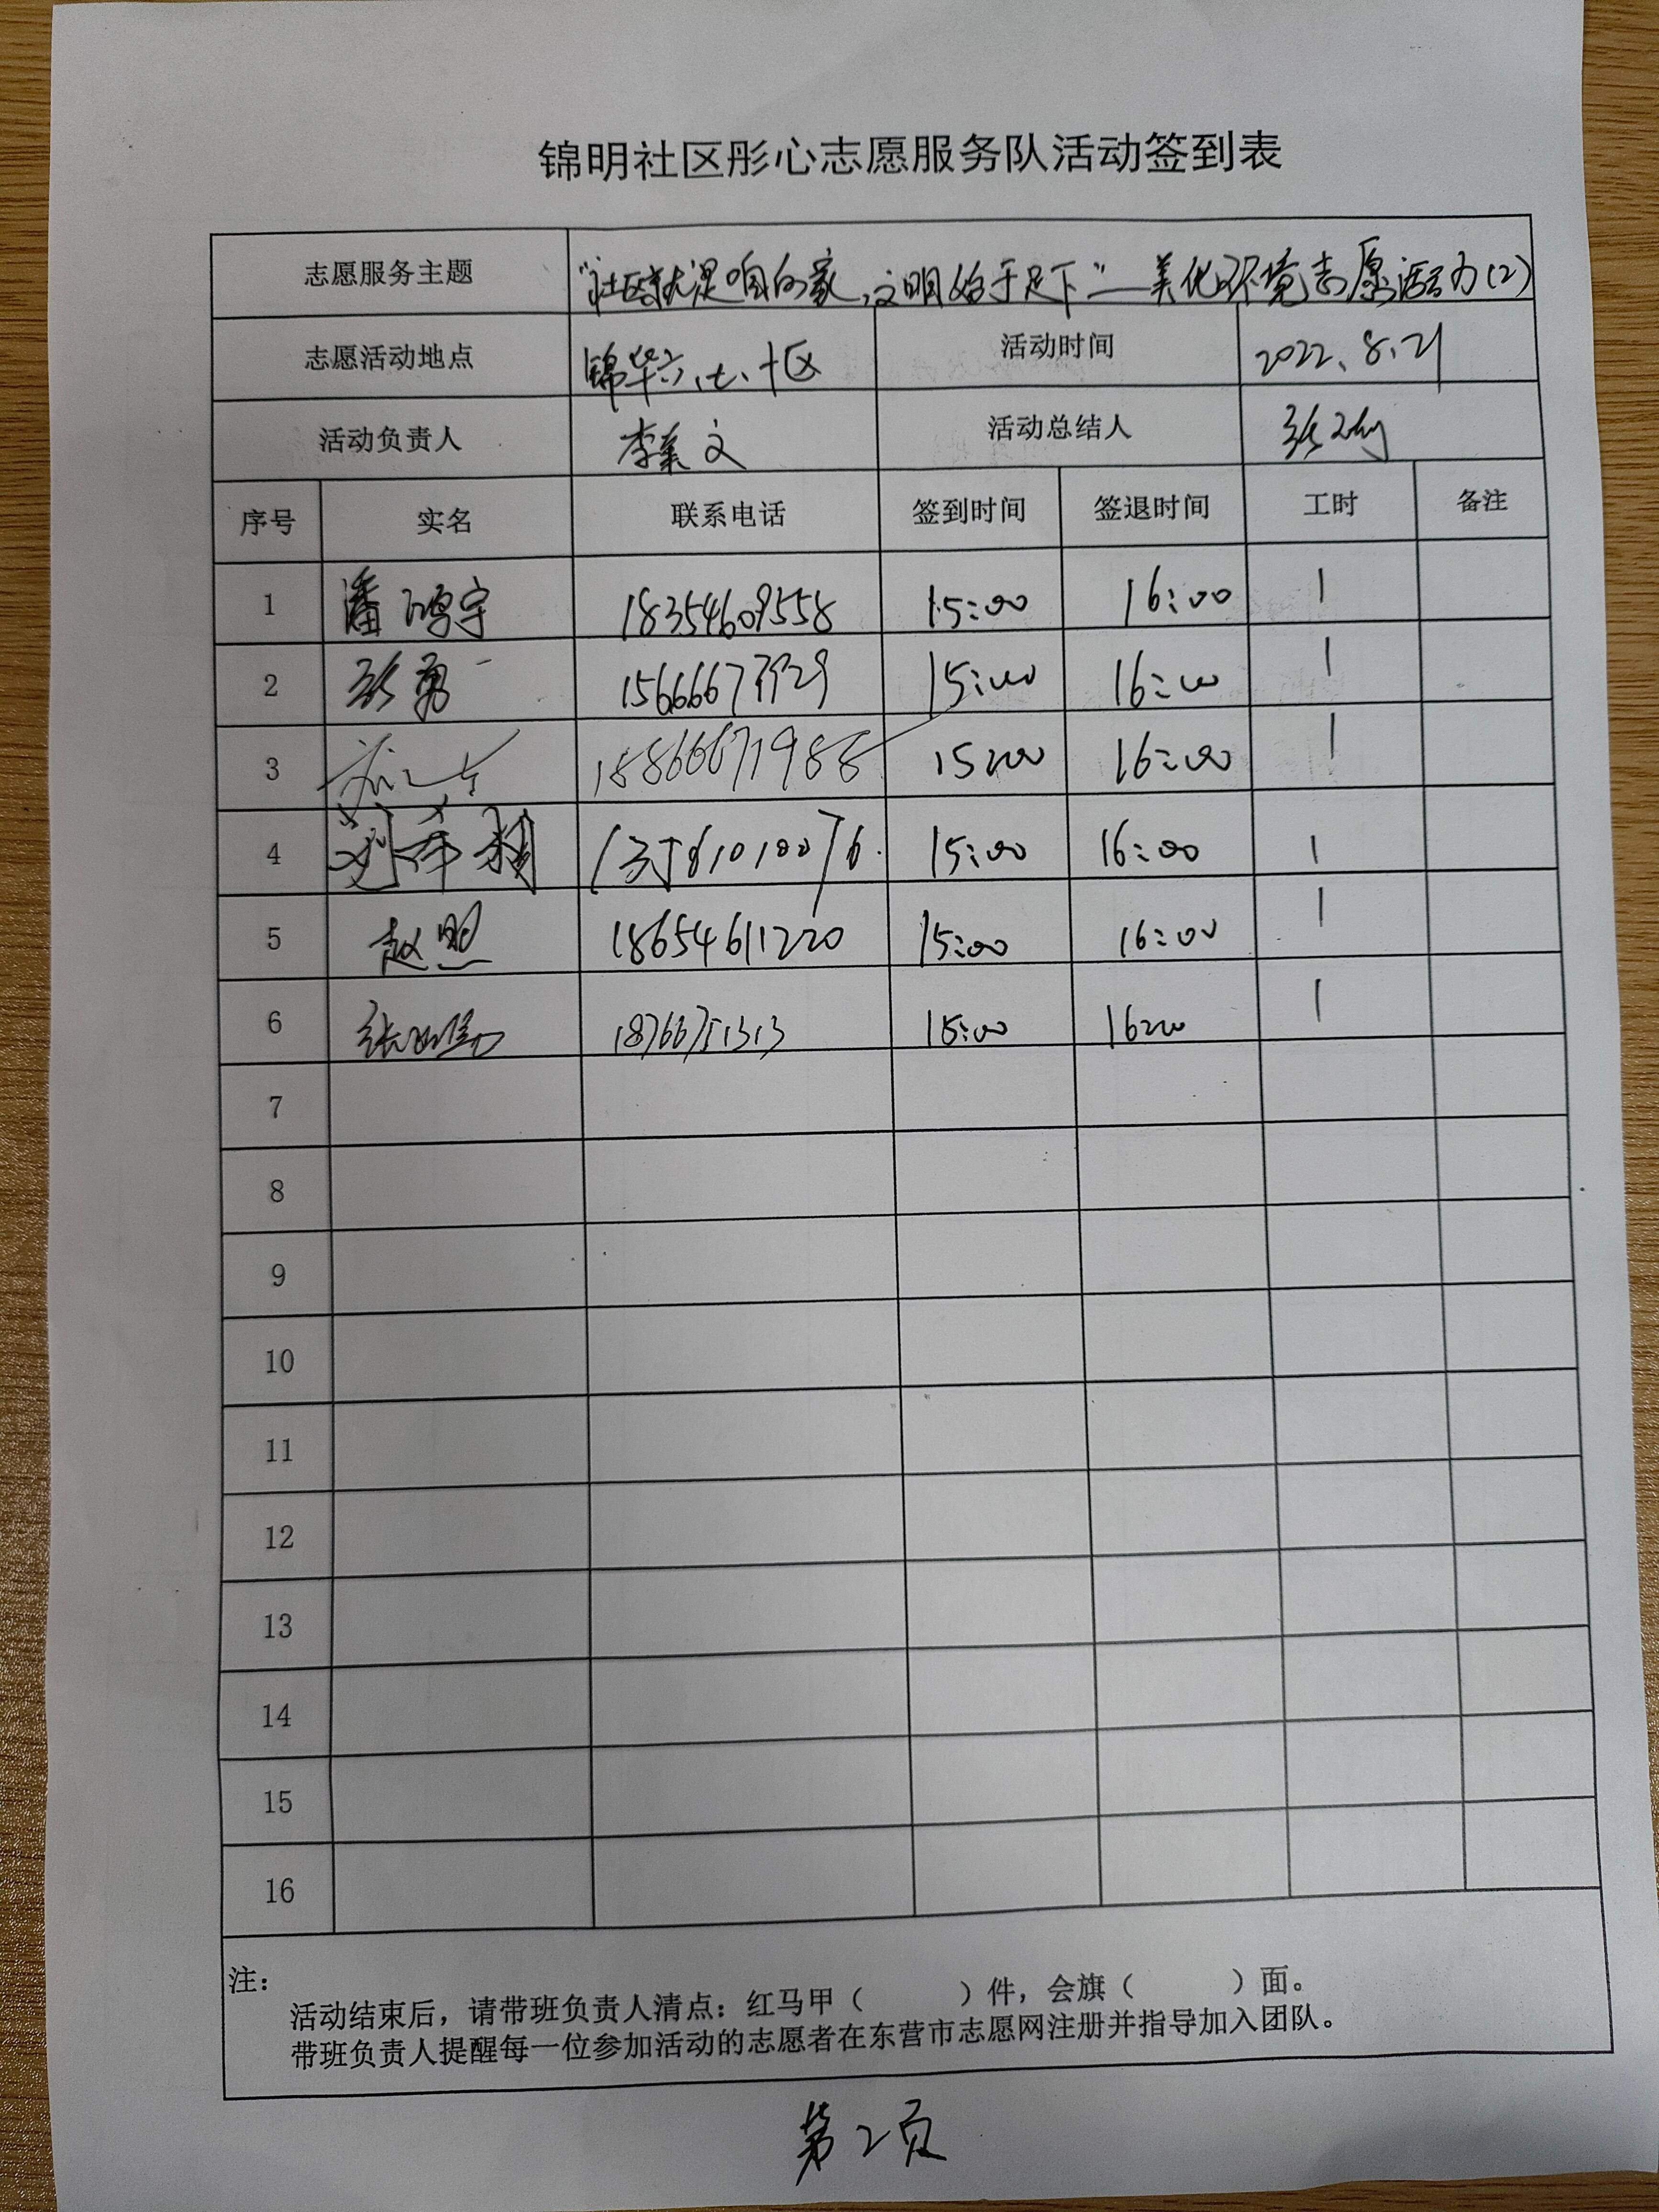 锦明社区彤心志愿服务队活动签到表
志愿服务主题 "社区就是咱的家,文明始于足下"—美化环境志愿活动(2)
志愿活动地点 锦华六、七、十区 活动时间 2022.8.21
活动负责人 李美文 活动总结人
序号 实名 联系电话 签到时间 签退时间 工时 备注
1 潘鸿宇 18354609558 15:00 16:00 1
2 彭勇 15:00 16:00 1
3 18866671988 15:00 16:00 1
4 15:00 16:00 1
5 赵照 18654611220 15:00 16:00 1
6 18766751313 15:00 16:00 1
7
8
9
10
11
12
13
14
15
16
注:
活动结束后,请带班负责人清点:红马甲( )件,会旗( )面。
带班负责人提醒每一位参加活动的志愿者在东营市志愿网注册并指导加入团队。
第2页